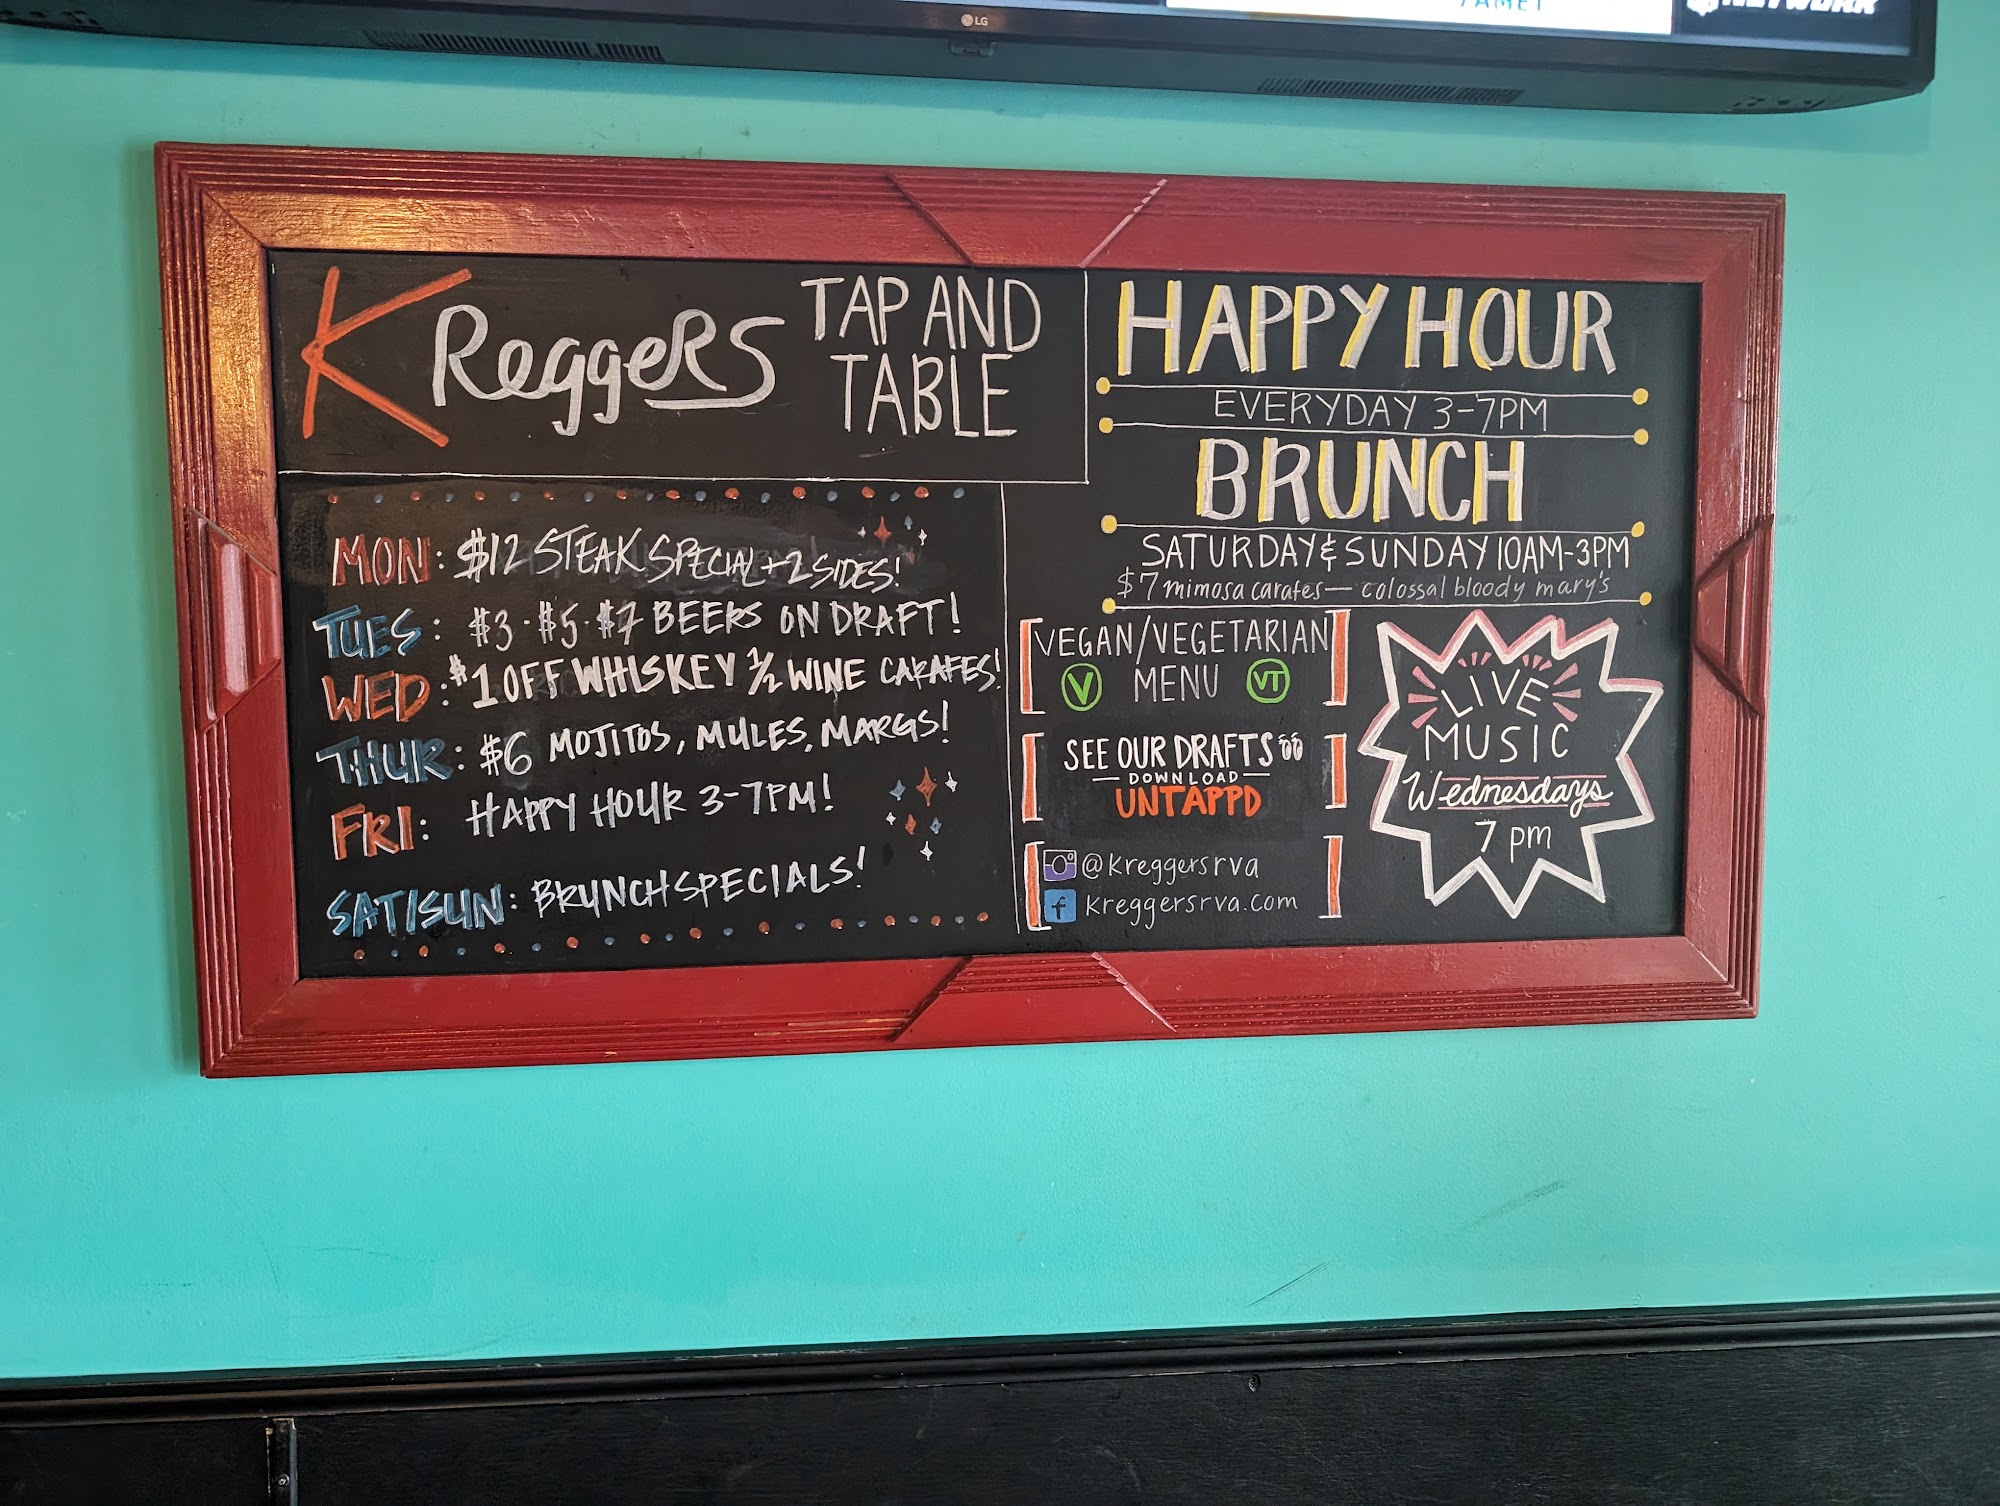 LG
NETWORK
KReggeRS
TAP AND
TABLE
MON: $12 STEAK SPECIAL + 2 SIDES!
TUES: $3 · $5 · $7 BEERS ON DRAFT!
WED: $1 OFF WHISKEY ½ WINE CARAFES!
THUR: $6 MOJITOS, MULES, MARGS!
FRI: HAPPY HOUR 3-7PM!
SAT/SUN: BRUNCH SPECIALS!
HAPPY HOUR
EVERYDAY 3-7PM
BRUNCH
SATURDAY & SUNDAY 10AM-3PM
$7 mimosa carafes — colossal bloody mary's
VEGAN/VEGETARIAN
V MENU VT
SEE OUR DRAFTS
— DOWNLOAD —
UNTAPPD
@kreggersrva
f kreggersrva.com
LIVE
MUSIC
Wednesdays
7 pm